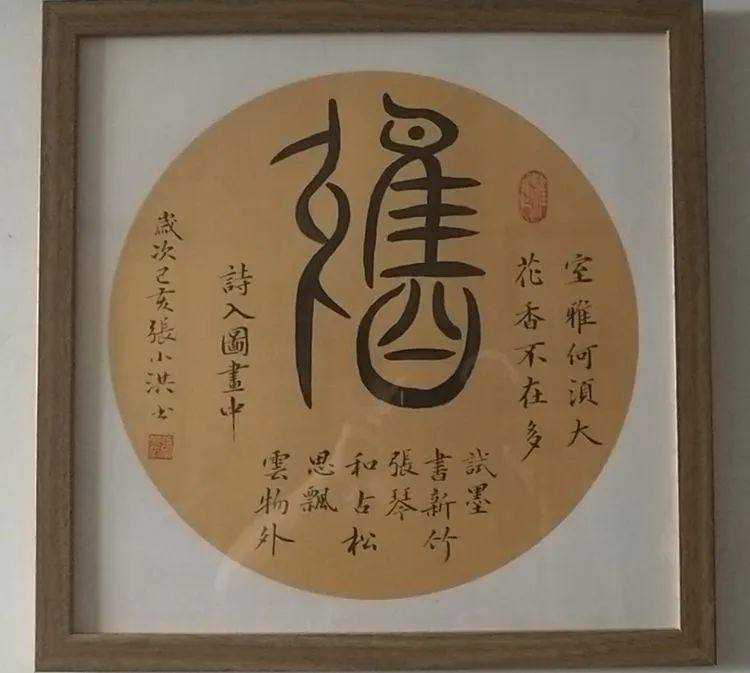 室雅何湏大
花香不在多
試墨
書新竹
張琴
和占松
思飄
雲物外
詩入圖畫中
歲次己亥張小洪书